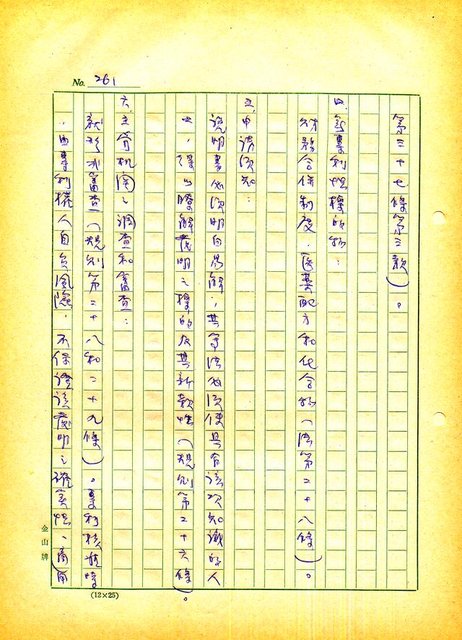 No. 261
第三十七條第三款）。
四、無專利性標的物：
財務合併制度，醫藥配方和化合物（法第二十八條）。
五、申請須知：
說明書必須明白易解，其寫法必須使具有該項知識的人
以，得以瞭解發明之標的及其新穎性（規則第二十六條）。
六、主管机關之調查和審查：
就形式審查（規則第二十八和二十九條）。專利核准時
，由專利權人自負風險，不保證該發明之確實性、
金山牌
(12×25)